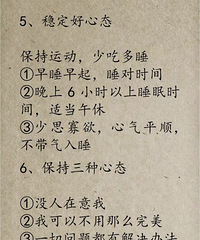 5、稳定好心态
保持运动，少吃多睡
①早睡早起，睡对时间
②晚上 6 小时以上睡眠时
间，适当午休
③少思寡欲，心气平顺，
不带气入睡
6、保持三种心态
①没人在意我
②我可以不用那么完美
③一切问题都有解决办法